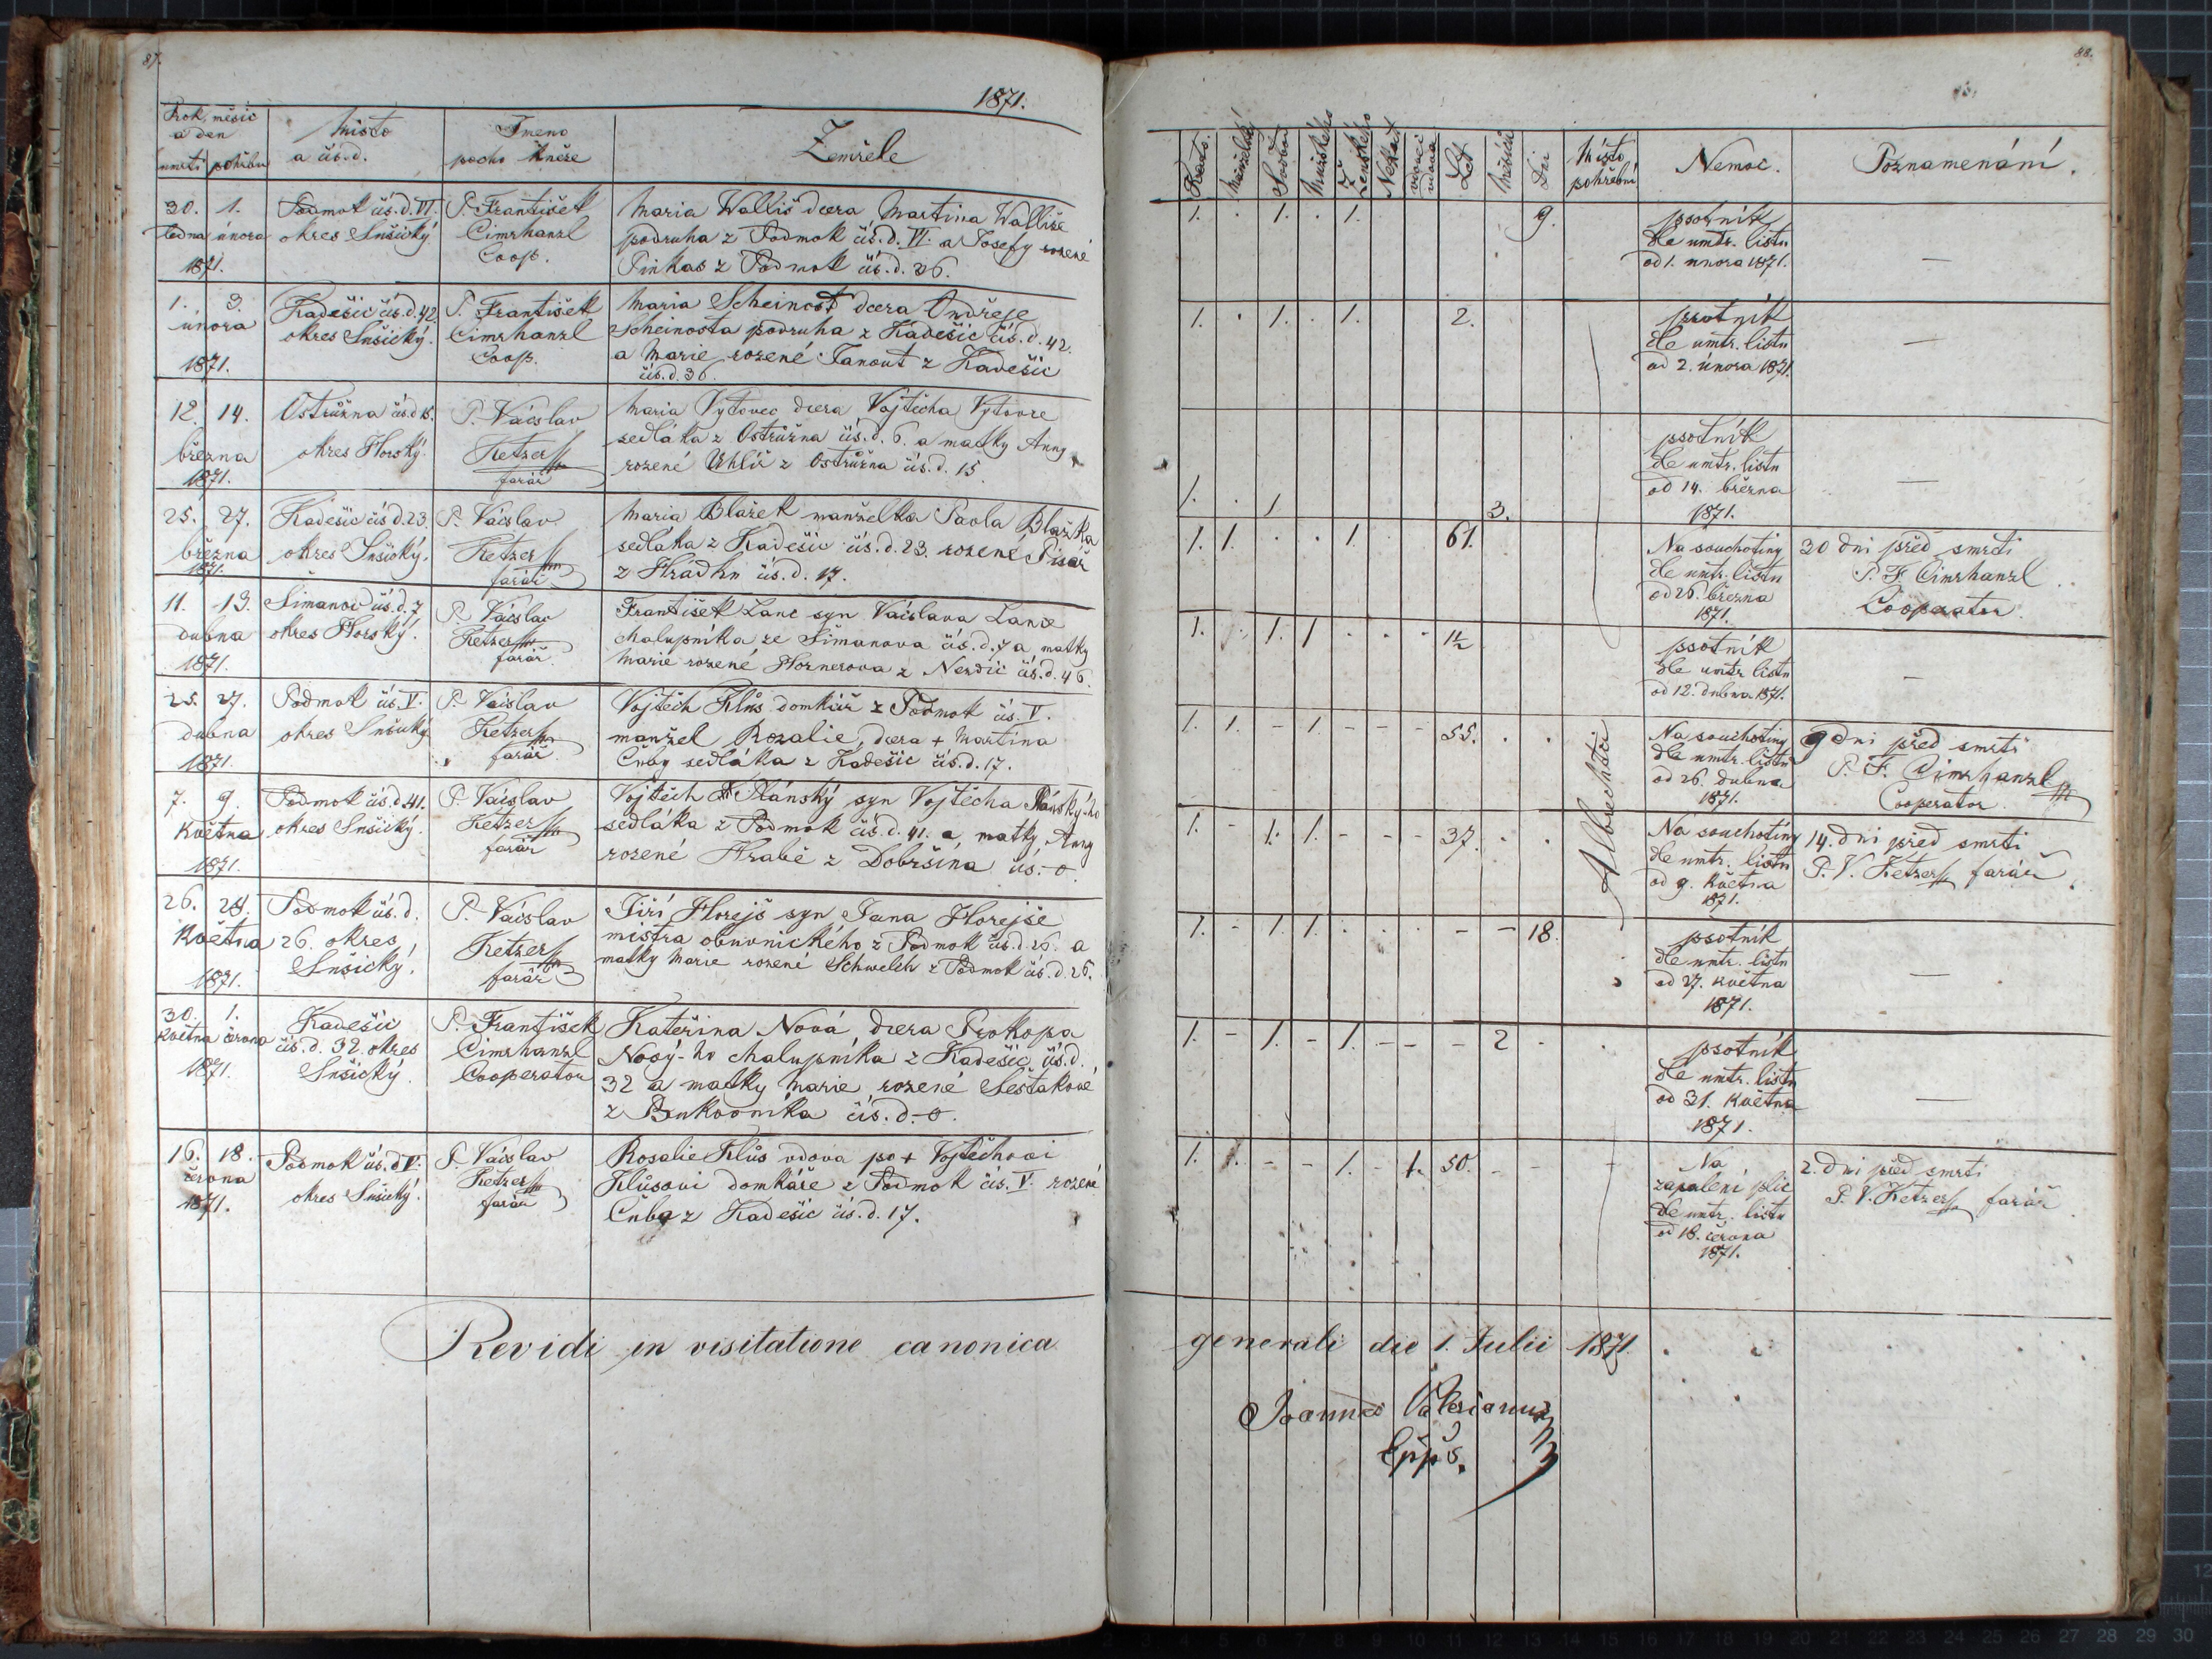 87.
1871.
Rok, měsíc
a den
umrtí pohřbu
Místo
a čís. d.
Jmeno
pocho. kněze
Zemřele
30. 1.
ledna února
1871.
Podmok čís. d. VI.
okres Sušický
P. František
Cimrhanzl
Coop.
Maria Walliš dcera Martina Walliše
podruha z Podmok čís. d. VI. a Josefy rozené
Pinkas z Podmok čís. d. 26.
1. 3.
února
1871.
Kadešic čís. d. 42.
okres Sušický.
P. František
Cimrhanzl
Coop.
Maria Scheinost dcera Ondřeje
Scheinosta podruha z Kadešic čís. d. 42.
a Marie rozené Janout z Kadešic
čís. d. 36.
12. 14.
března
1871.
Ostružna čís. d. 15.
okres Horský.
P. Václav
Ketzer
farář
Maria Vytovec dcera Vojtěcha Vytovce
sedláka z Ostružna čís. d. 6. a matky Anny
rozené Uhlíř z Ostružna čís. d. 15.
25. 27.
března
1871.
Kadešic čís d. 23.
okres Sušický.
P. Václav
Ketzer
farář
Maria Blažek manželka Pavla Blažka
sedláka z Kadešic čís. d. 23. rozené Pisař
z Hradku čís. d. 17.
11. 13.
dubna
1871.
Šimanov čís. d. 7
okres Horský.
P. Václav
Ketzer
farář.
František Lanc syn Václava Lance
chalupníka ze Šimanova čís. d. 7 a matky
Marie rozené Hornerova z Nezdic čís. d. 46.
25. 27.
dubna
1871.
Podmok čís. V.
okres Sušický
P. Václav
Ketzer
farář
Vojtěch Klůs domkář z Podmok čís. V.
manžel Rozalie, dcera + Martina
Čuby sedláka z Kadešic čís. d. 17.
7. 9.
Května
1871.
Podmok čís. d. 41.
okres Sušický.
P. Václav
Ketzer
farář
Vojtěch Plánský syn Vojtěcha Plánský-ho
sedláka z Podmok čís. d. 41. a matky Anny
rozené Hrabě z Dobršína čís. - o.
26. 28.
Května
1871.
Podmok čís. d.
26. okres
Sušický.
P. Václav
Ketzer
farář
Jiří Horejš syn Jana Horejše
mistra obuvnického z Podmok čís. d. 26. a
matky Marie rozené Schwelch z Podmok čís. d. 26.
30. 1.
Května června
1871.
Kadešic
čís. d. 32. okres
Sušický.
P. František
Cimrhanzl
Cooperator
Kateřina Nová dcera Prokopa
Nový-ho chalupníka z Kadešic čís. d.
32 a matky Marie rozené Šestakové
z Bukovníka čís. d. - o.
16. 18.
června
1871.
Podmok čís. d V.
okres Sušický.
P. Václav
Ketzer
farář
Rosalie Klůs vdova po + Vojtěchovi
Klůsovi domkáře z Podmok čís. V. rozené
Čuba z Kadešic čís. d. 17.
Revidi in visitatione canonica
88.
Kato. Svobod Mužského Ženského vdovci vdova Let Měsíců Dní
Místo
pohřební
Nemoc.
Poznamenání.
1. . 1. . 1. 9.
psotník
dle umtr. listu
od 1. února 1871.
—
1. . 1. . 1. 2.
psotník
dle umtr. listu
od 2. února 1871.
—
1. . 1 3.
psotník
dle umtr. listu
od 14. března
1871.
—
1. 1. . . 1. 61.
Na souchotiny
dle umtr. listu
od 26. března
1871.
30 dni před smrti
P. F. Cimrhanzl
Cooperator.
1. . 1. 1 . . . 1½
psotník
dle umtr. listu
od 12. dubna 1871.
—
1. 1. - 1. - - - 55. . .
Albrechtic
Na souchotiny
dle umtr. listu
od 26. dubna
1871.
9 dni před smrti
P. F. Cimrhanzl
Cooperator
1. - 1. 1. - - - 37. . .
Na souchotiny
dle umtr. listu
od 9. Května
1871.
14. dni před smrti
P. V. Ketzer farář
1. - 1. 1. . . . - - 18.
psotník
dle umtr. listu
od 27. Května
1871.
—
1. - 1. - 1. - - - 2 -
psotník
dle umtr. listu
od 31. Května
1871.
—
1. 1. - - 1. - 1. 50. - - -
Na
zapalení plic
dle umtr. listu
od 18. června
1871.
2. dni před smrti
P. V. Ketzer farář
generali die 1. Julii 1871.
Joannes Valerianus
Eppus.